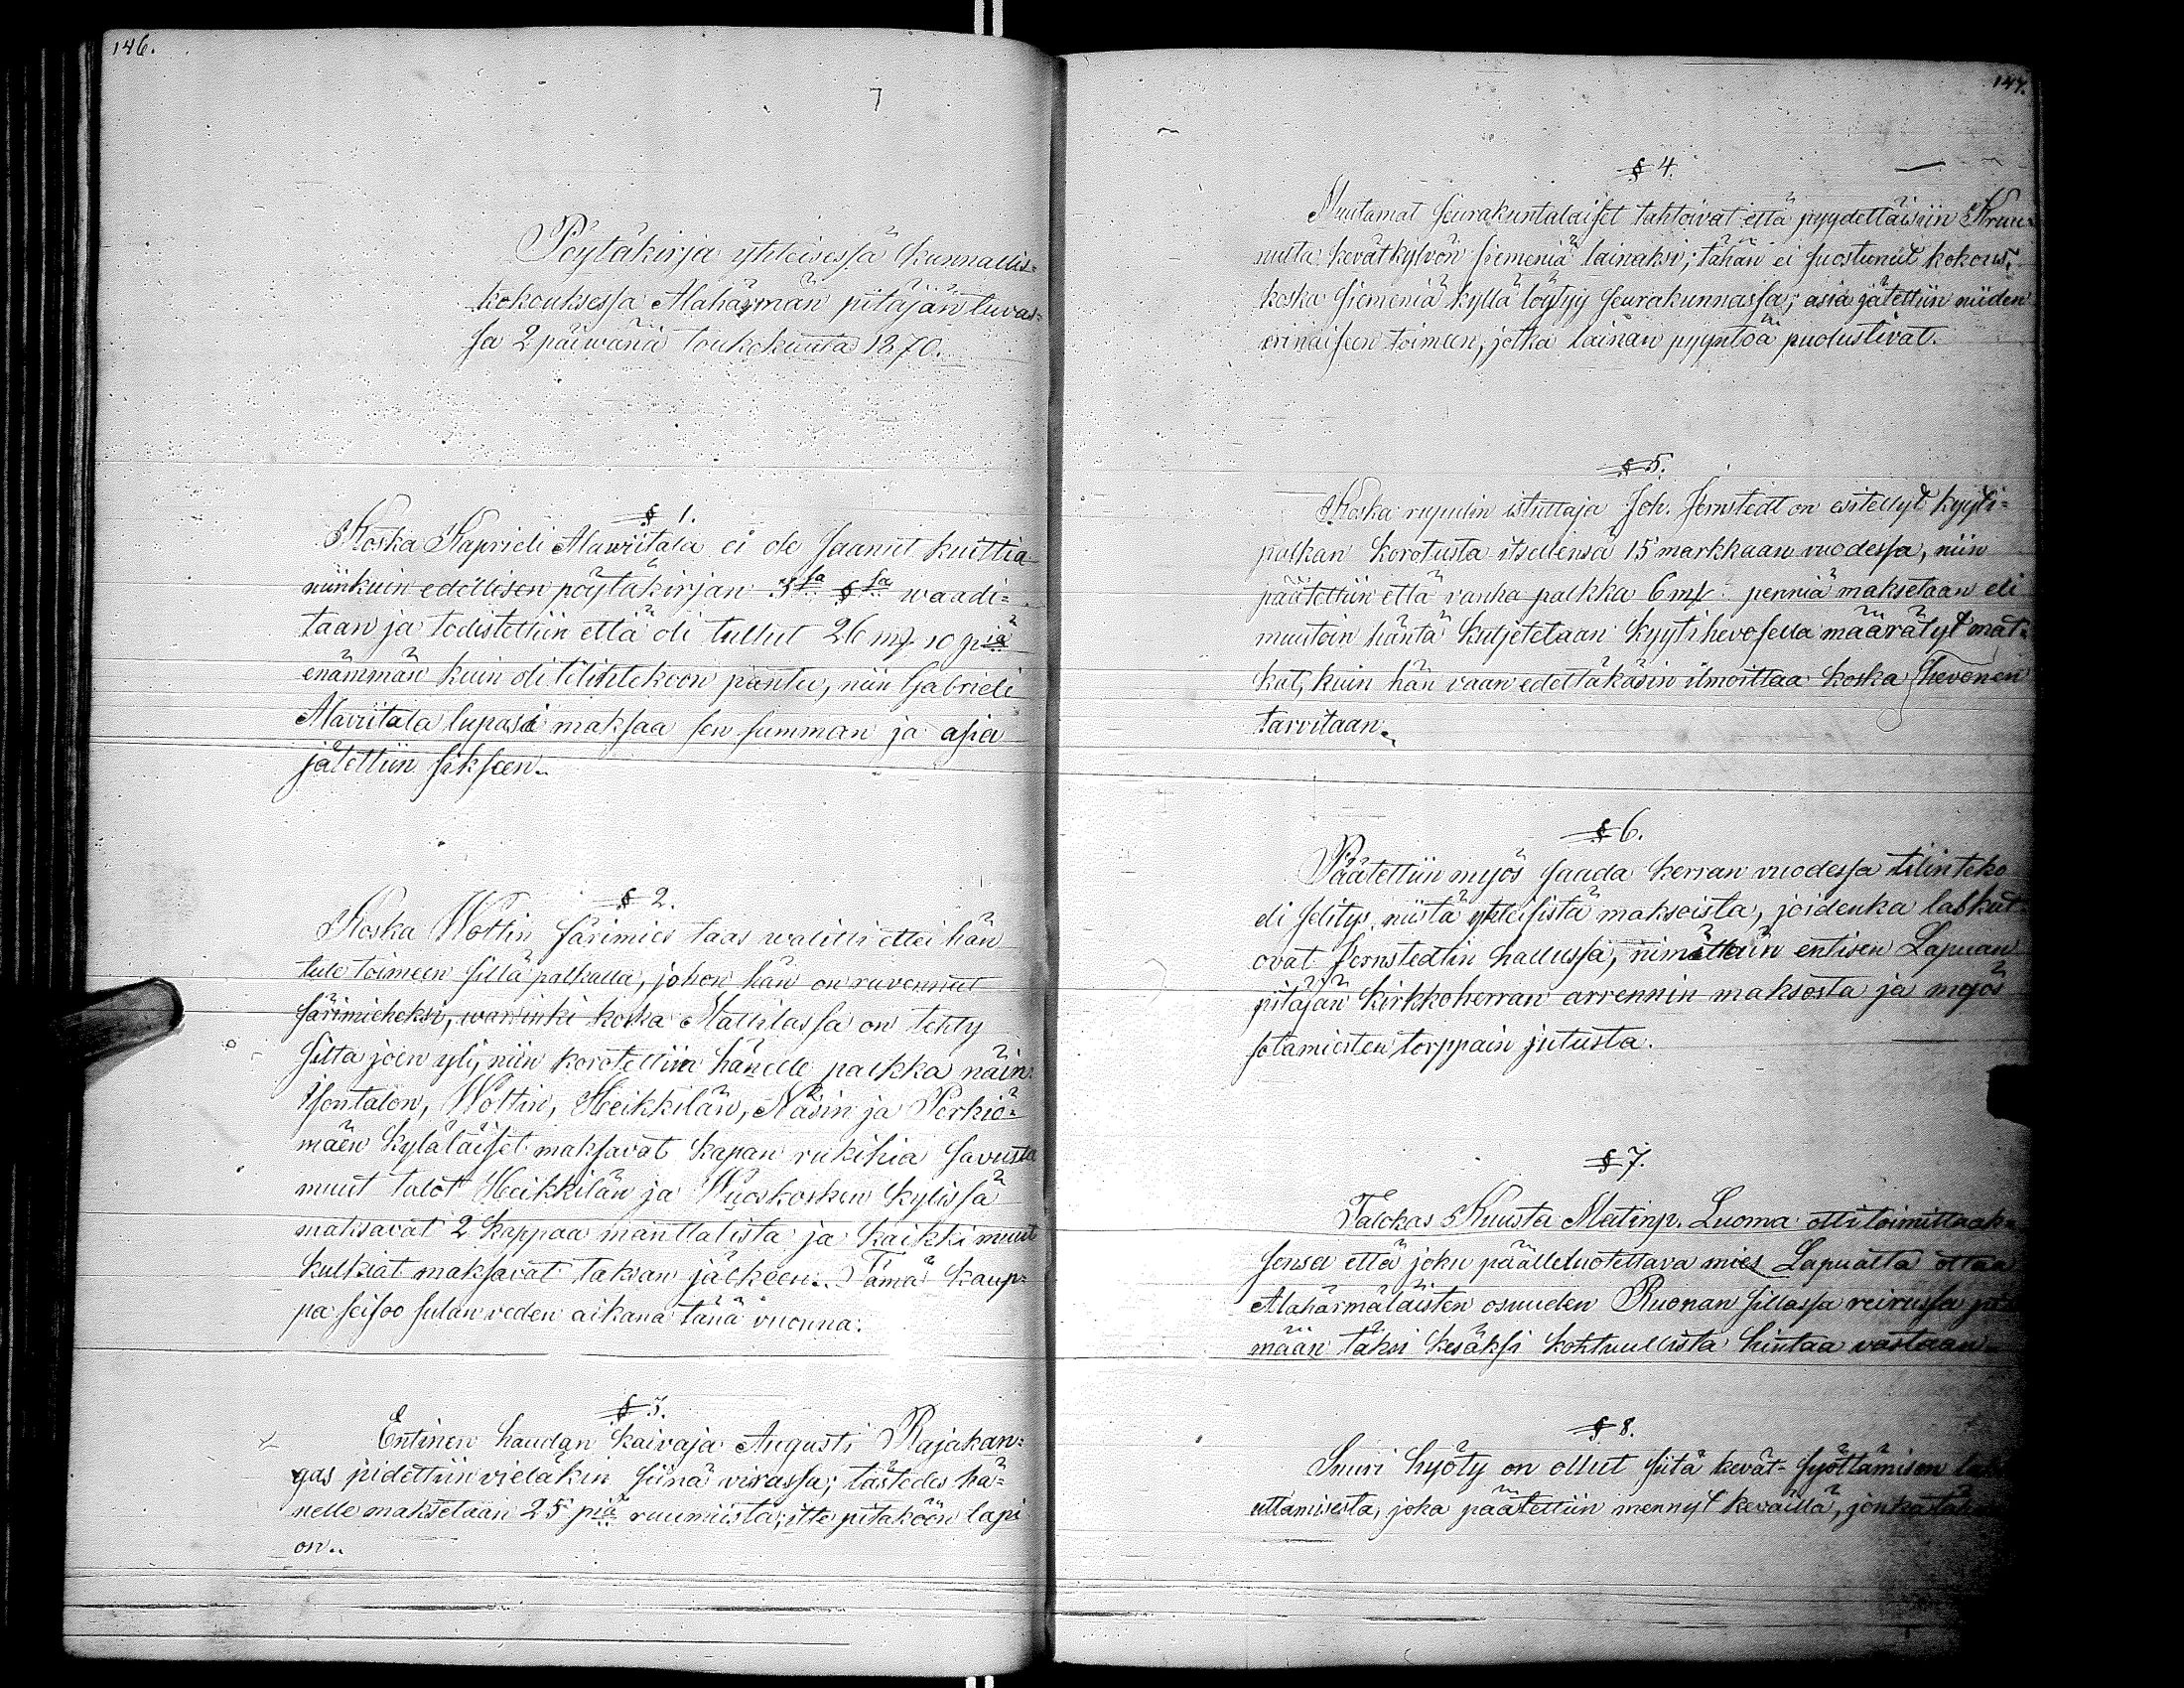 146.
Pöytäkirja yhteisessä kunnallis=
kokouksessa Alahärmän pitäjäntuvas=
sa 2 päiwänä toukokuuta 1870.
§ 1.
Koska Kaprieli Alawiitala ei ole saanut kuittia
niinkuin edellisen pöytäkirjan 3ssa §ssa waadi=
taan ja todistettiin että oli tullut 26 mk 10 piä
enämmän kuin oli tilintekoon pantu, niin Gabrieli
Alaviitala lupasi maksaa sen summan ja asia
jätettiin sikseen.
§ 2.
Koska Woltin färimies taas walitti ettei hän
tule toimeen sillä palkalla, johon hän on ruvennut
färimieheksi, warsinki koska Mattilassa on tehty
silta joen yli, niin korotettiin hänelle palkka näin:
Ysontalon, Woltin, Heikkilän, Näsin ja Perkiö=
mäen kyläläiset maksavat kapan rukihia savusta
muut talot Heikkilän ja Wuoskosken kylissä
maksavat 2 kappaa manttalista ja kaikki muut
kulkiat maksavat taksan jälkeen. Tämä kaup=
pa seisoo sulan veden aikana tänä vuonna.
§ 3.
Entinen haudan kaivaja Augusti Rajakan=
gas pidettiin vieläkin siinä virassa; tästedes hä=
nelle maksetaan 25 piä ruumiista; itte pitäköön lapi
on.
147.
§ 4.
Muutamat seurakuntalaiset tahtoivat että pyydettäisiin Kruu=
nulta kevätkylvön siemeniä lainaksi; tähän ei suostunut kokous,
koska siemeniä kyllä löytyy seurakunnassa; asia jätettiin niiden
erinäiseen toimeen, jotka lainan pyyntöä puolustivat.
§ 5.
Koska rupulin istuttaja Joh. Jernstedt on esitellyt kyyti=
palkan korotusta itsellensä 15 markkaan vuodessa, niin
päätettiin että vanha palkka 6 mk penniä maksetaan eli
muutoin häntä kuljetetaan kyytihevosella määrätyt mat=
kat, kuin hän vaan edeltäkäsin ilmoittaa koska hevonen
tarvitaan.
§ 6.
Päätettiin myös saada kerran vuodessa tilinteko
eli selitys niistä yhteisistä maksoista, joidenka laskut
ovat Jernstedtin hallussa, nimittäin entisen Lapuan
pitäjän kirkkoherran arrennin maksosta ja myös
sotamiesten torppain jutusta.
§ 7.
Talokas Kuusta Matinp. Luoma otti toimittaak=
sensa että joku päälleluotettava mies Lapualta ottaa
Alahärmäläisten osuuden Ruonan sillassa reirussa
mään täksi kesäksi kohtuullista hintaa vastaan.
§ 8.
Suuri hyöty on ollut siitä kevät-syöttämisen
uttamisesta, joka päätettiin mennyt keväillä, jonka